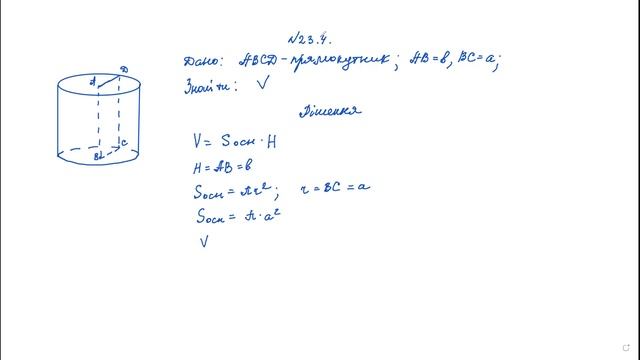 №23.4.
Дано: ABCD-прямокутник; AB=в, BC=a;
Знайти: V
Рішення
V= Sосн·H
H=AB=в
Sосн=πr²; r=BC=a
Sосн=π·a²
V
A
D
B
C